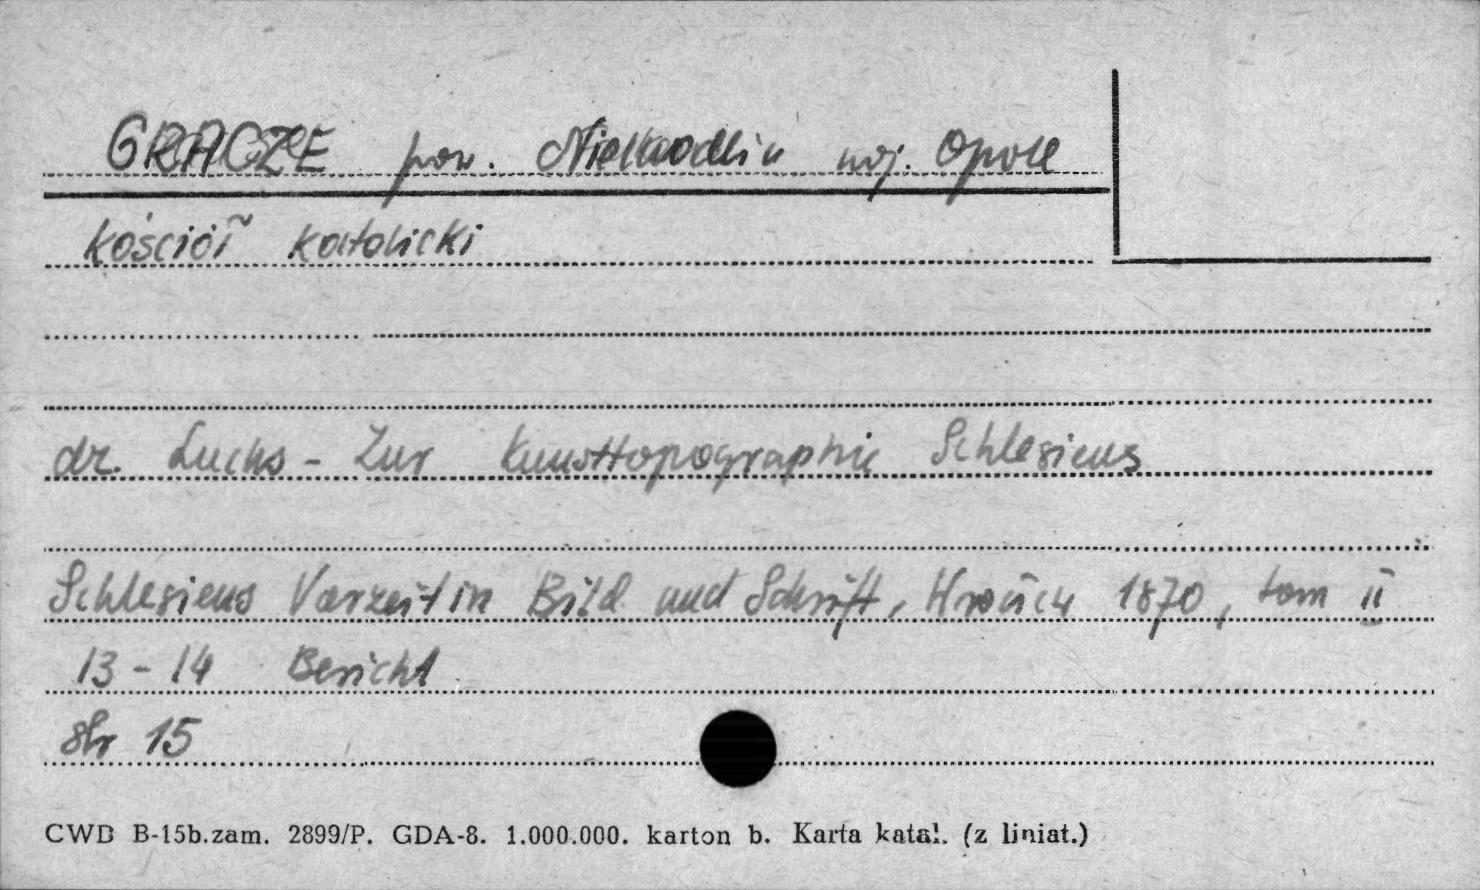 GRACZE pow. Niemodlin woj. Opole
kościół katolicki
dr. Luchs - Zur Kunsttopographie Schlesiens
Schlesiens Vorzeit in Bild und Schrift, 1870, tom II
13 - 14 Bericht
str 15
CWD B-15b.zam. 2899/P. GDA-8. 1.000.000. karton b. Karta katal. (z liniat.)